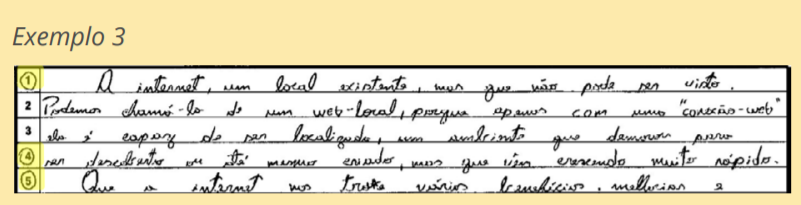 Exemplo 3
1 A internet, um local existente, mas que não pode ser visto.
2 Podemos chamá-lo de um web-local, porque apenas com uma "conexão-web"
3 ele é capaz de ser localizado, um ambiente que demorou para
4 ser descoberto ou até mesmo criado, mas que vêm crescendo muito rápido.
5 Que a internet nos trouxe vários benefícios, melhorias e